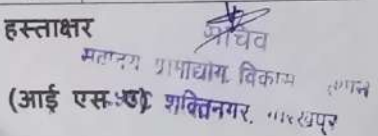 हस्ताक्षर सचिव
ग्रामोद्योग विकास
(आई एस शक्तिनगर, गोरखपुर